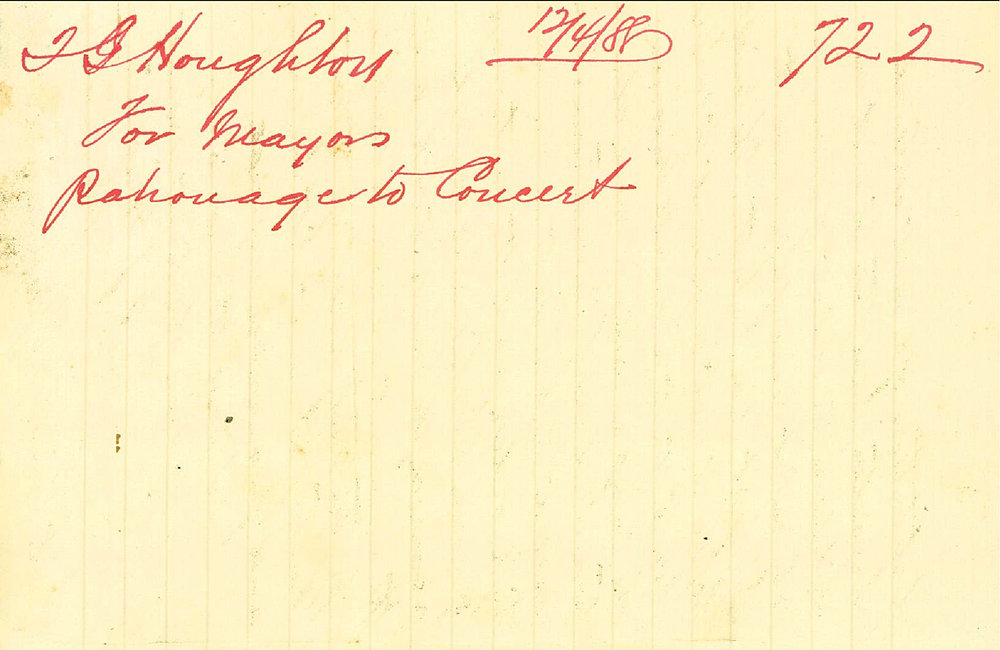 T G Houghton 12/4/88 722
For Mayors
Patronage to Concert